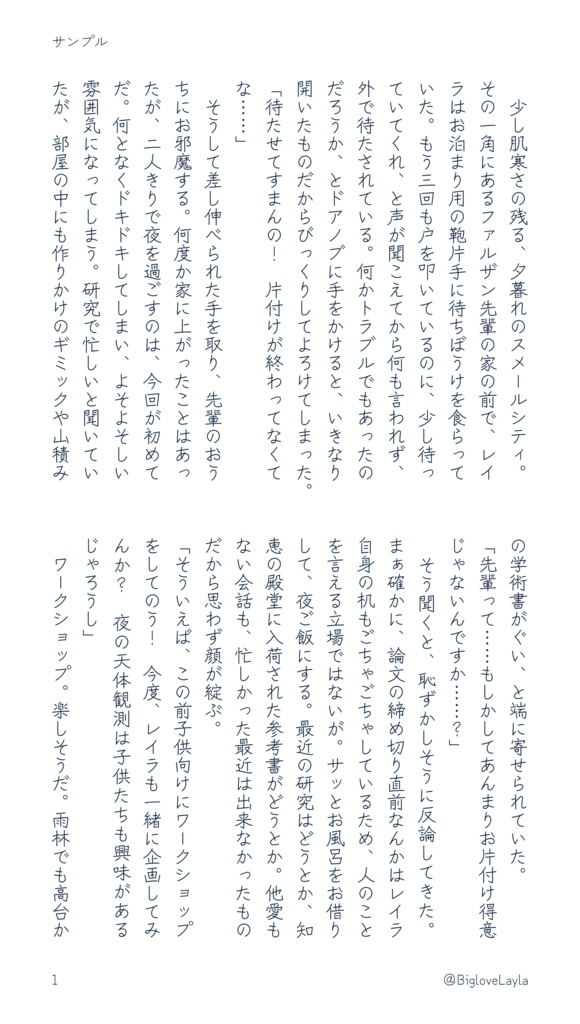 サンプル
　少し肌寒さの残る、夕暮れのスメールシティ。
その一角にあるファルザン先輩の家の前で、レイ
ラはお泊まり用の鞄片手に待ちぼうけを食らって
いた。もう三回も戸を叩いているのに、少し待っ
ていてくれ、と声が聞こえてから何も言われず、
外で待たされている。何かトラブルでもあったの
だろうか、とドアノブに手をかけると、いきなり
開いたものだからびっくりしてよろけてしまった。
「待たせてすまんの！　片付けが終わってなくて
な……」
　そうして差し伸べられた手を取り、先輩のおう
ちにお邪魔する。何度か家に上がったことはあっ
たが、二人きりで夜を過ごすのは、今回が初めて
だ。何となくドキドキしてしまい、よそよそしい
雰囲気になってしまう。研究で忙しいと聞いてい
たが、部屋の中にも作りかけのギミックや山積み
の学術書がぐい、と端に寄せられていた。
「先輩って……もしかしてあんまりお片付け得意
じゃないんですか……？」
　そう聞くと、恥ずかしそうに反論してきた。
まぁ確かに、論文の締め切り直前なんかはレイラ
自身の机もごちゃごちゃしているため、人のこと
を言える立場ではないが。サッとお風呂をお借り
して、夜ご飯にする。最近の研究はどうとか、知
恵の殿堂に入荷された参考書がどうとか。他愛も
ない会話も、忙しかった最近は出来なかったもの
だから思わず顔が綻ぶ。
「そういえば、この前子供向けにワークショップ
をしてのう！　今度、レイラも一緒に企画してみ
んか？　夜の天体観測は子供たちも興味がある
じゃろうし」
　ワークショップ。楽しそうだ。雨林でも高台か
1
@BigloveLayla